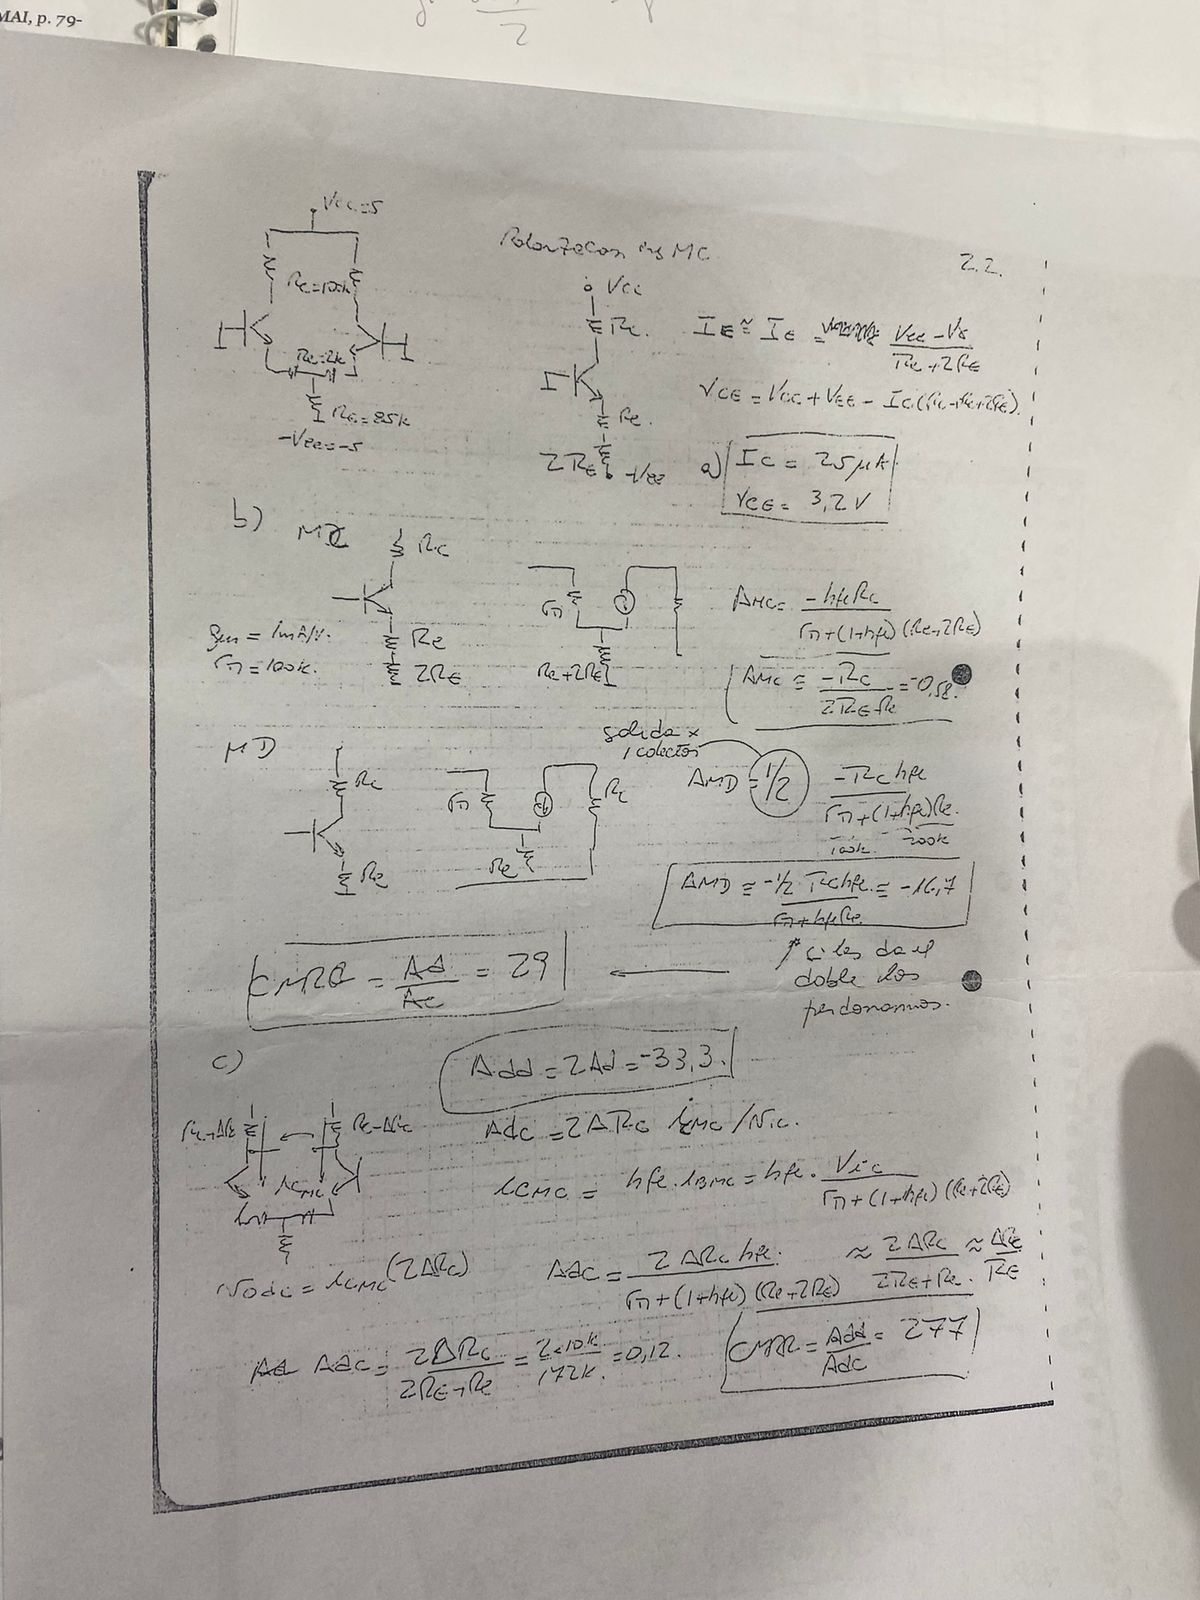 MAI, p. 79-
2
Vcc=5
Polarización MC
2.2.
Rc=100k
Vcc
Rc.
IE ≅ IC = Vcc - Vγ / Re+2RE
Re=2k
Re.
VCE = VCC + VEE - IC(Rc+Re+2RE).
RE=85k
-Vee=-5
2RE -VEE
a) IC = 25μA
VCE = 3,2V
b)
MC
Rc
gm = 1mA/V.
rπ = 100k.
Re
2RE
rπ
Re+2RE
AMC = -hfeRc / rπ+(1+hfe)(Re+2RE)
AMC ≅ -Rc / 2RE+Re = -0,58.
MD
Rc
Re
rπ
Rc
Re
salida x
1 colector
AMD = 1/2 -Rc hfe / rπ+(1+hfe)Re.
100k 200k
AMD ≅ -1/2 Rchfe / rπ+hfeRe ≅ -16,7
CMRR = Ad / Ac = 29
si les da el
doble los
perdonamos.
c)
Add = 2Ad = -33,3.
Rc+ΔRc
Rc-ΔRc
iCMC
Adc = 2ΔRc iCMC / Vic.
iCMC = hfe.iBMC = hfe. Vic / rπ+(1+hfe)(Re+2RE)
vodc = iCMC(2ΔRc)
Adc = 2ΔRc hfe / rπ+(1+hfe)(Re+2RE) ≈ 2ΔRc / 2RE+Re. ≈ ΔRc / RE
Adc = 2ΔRc / 2RE+Re = 2×10k / 172k. = 0,12.
CMRR = Add / Adc = 277